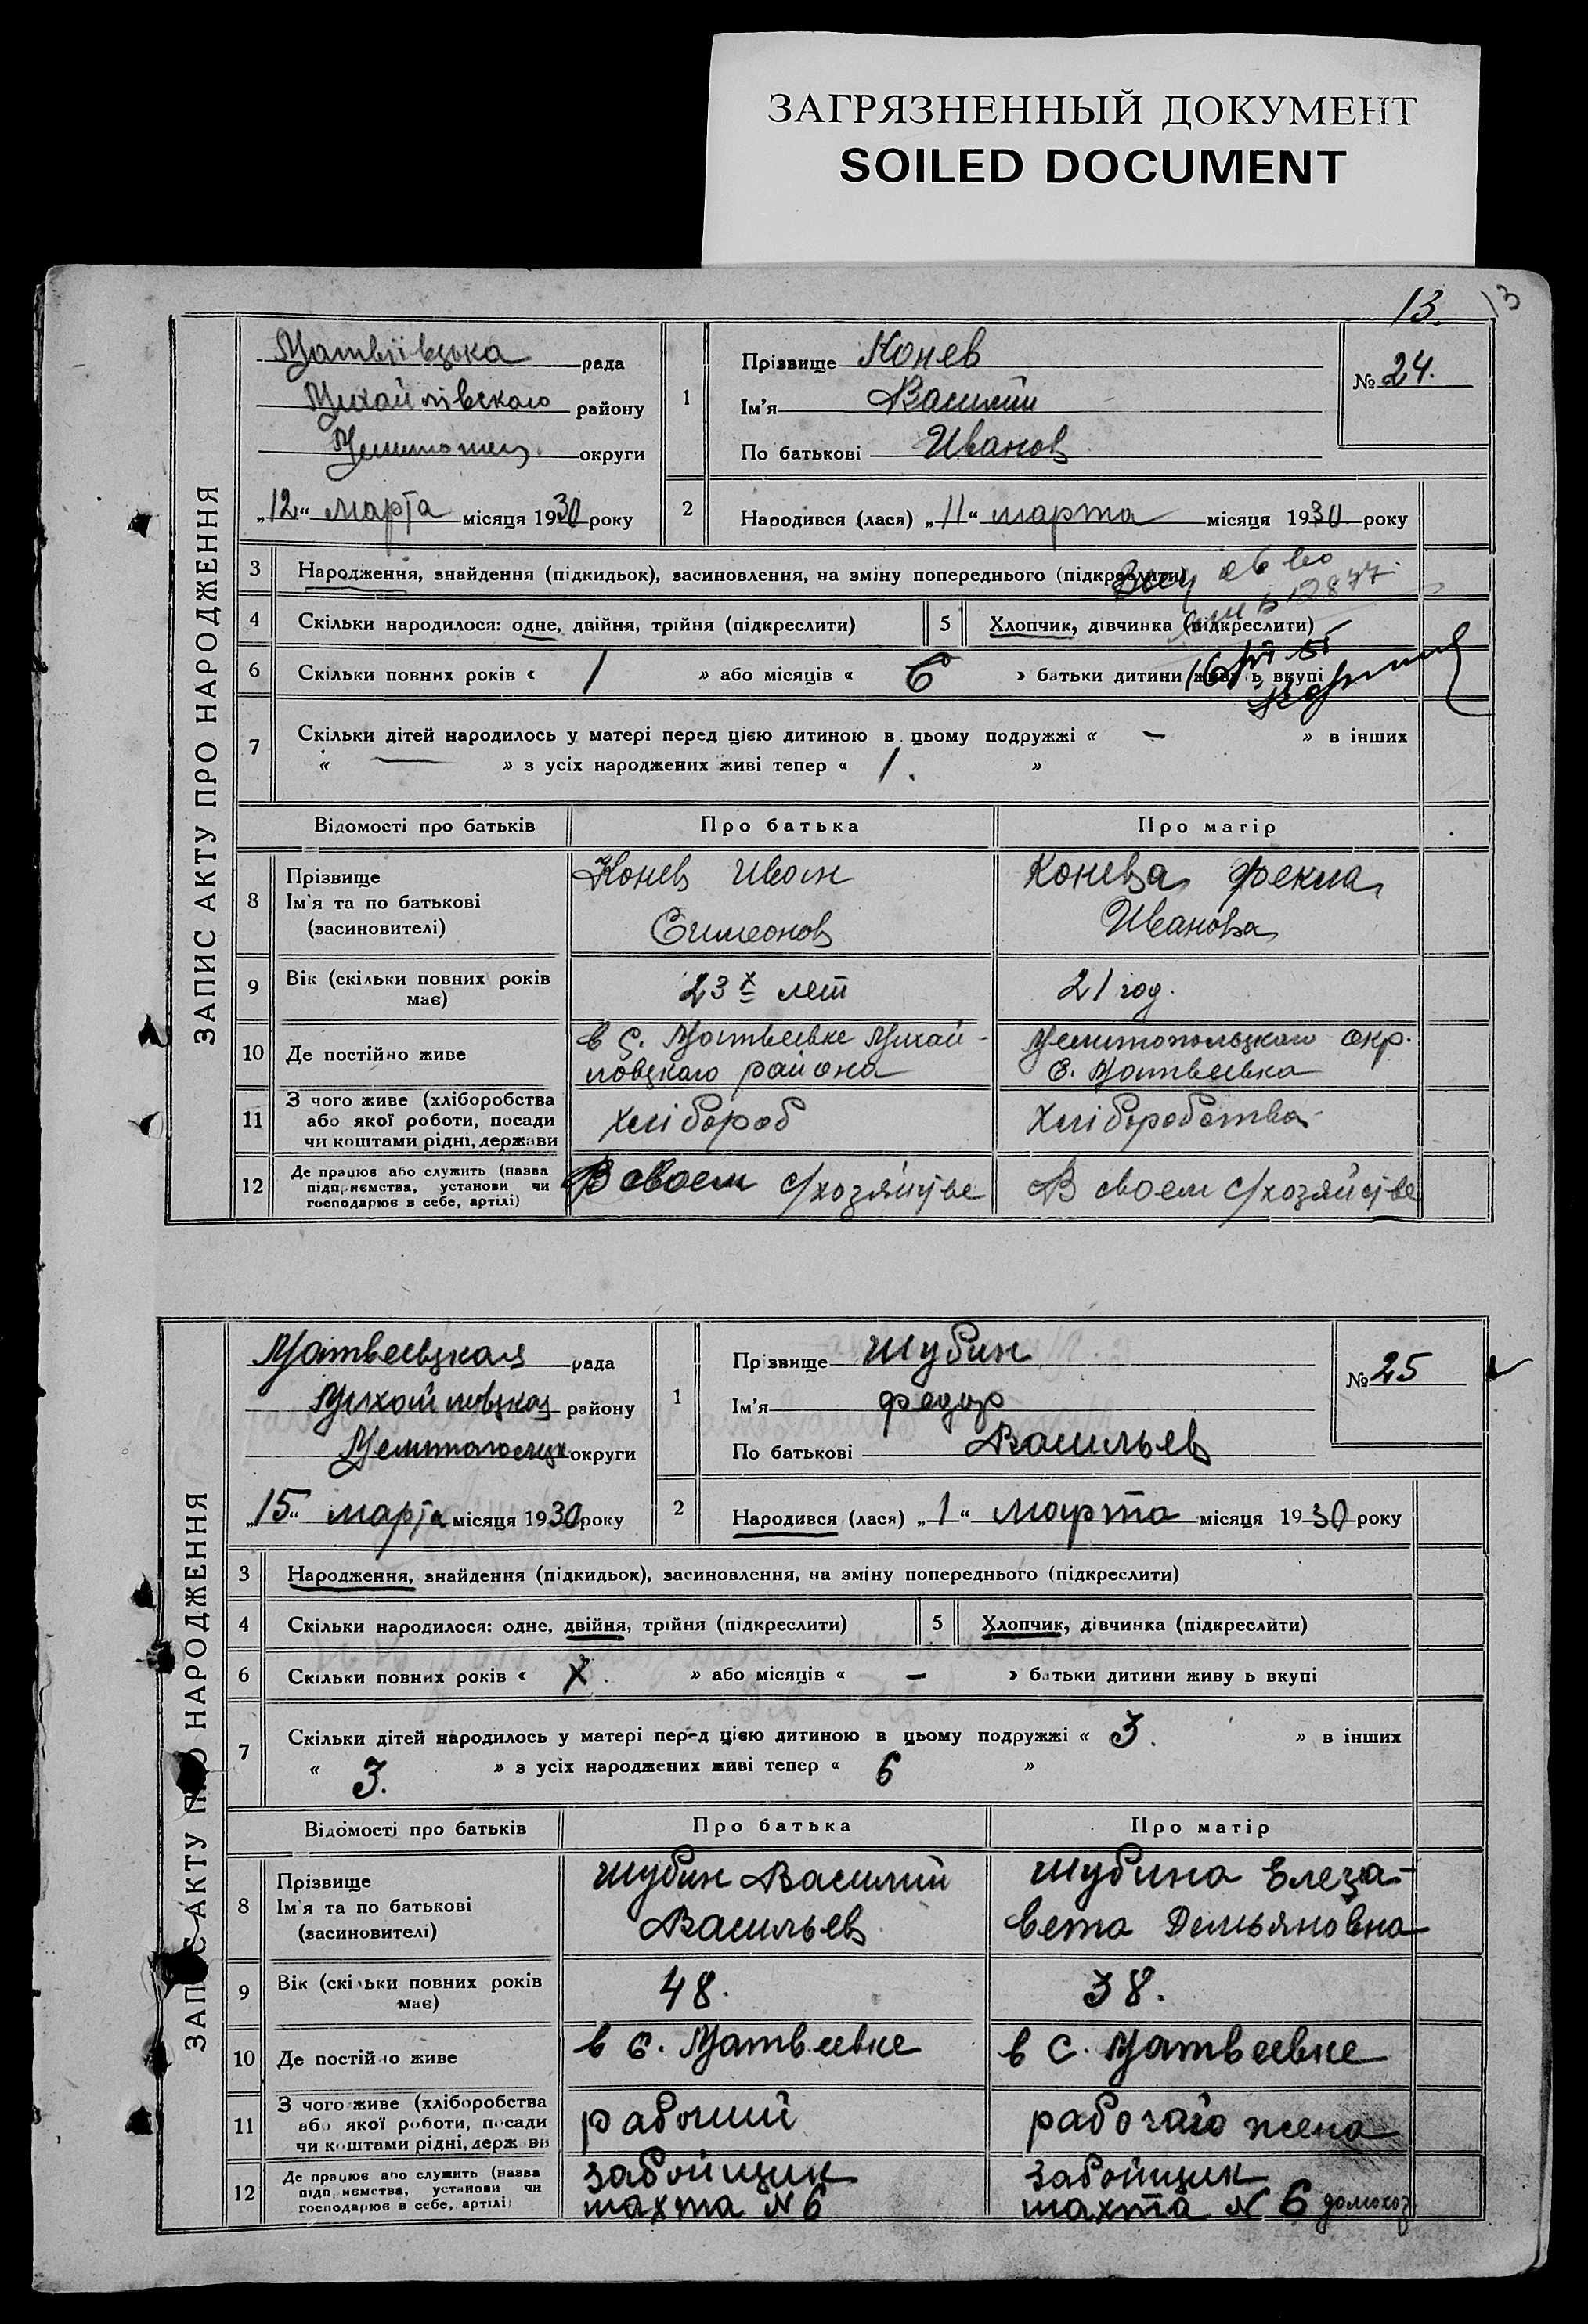 ЗАГРЯЗНЕННЫЙ ДОКУМЕНТ
SOILED DOCUMENT
13. 13
ЗАПИС АКТУ ПРО НАРОДЖЕННЯ
Матвіівцька рада
Михайлівскаго району
округи
„12“ марта місяця 1930 року
1
Прізвище Конев
Ім'я Василий
По батькові Иванов
№ 24.
2
Народився (лася) „11“ марта місяця 1930 року
3 Народження, знайдення (підкидьок), засиновлення, на зміну попереднього (підкреслити)
4 Скільки народилося: одне, двійня, трійня (підкреслити) 5 Хлопчик, дівчинка (підкреслити)
6 Скільки повних років « 1 » або місяців « 6 » батьки дитини живуть вкупі
7 Скільки дітей народилось у матері перед цією дитиною в цьому подружжі « — » в інших
« — » з усіх народжених живі тепер « 1. »
Відомості про батьків Про батька Про матір
8 Прізвище
Ім'я та по батькові
(засиновителі)
Конев Иван
Симеонов
Конева Фекла
Иванова
9 Вік (скільки повних років
має)
23х лет
21 год.
10 Де постійно живе
в с. Матвеевке Михай-
ловцкаго района
Мелитопольцкаго окр.
с. Матвеевка
11 З чого живе (хліборобства
або якої роботи, посади
чи коштами рідні, держави
хлібороб
хліборобства
12 Де працює або служить (назва
підприємства, установи чи
господарює в себе, артілі)
В своем с/хозяйстве
В своем с/хозяйстве
ЗАПИС АКТУ ПРО НАРОДЖЕННЯ
Матвеевцкая рада
Михайловцкаг району
округи
„15“ марта місяця 1930 року
1
Прізвище Шубин
Ім'я Федор
По батькові Васильев
№ 25
2
Народився (лася) „1“ марта місяця 1930 року
3 Народження, знайдення (підкидьок), засиновлення, на зміну попереднього (підкреслити)
4 Скільки народилося: одне, двійня, трійня (підкреслити) 5 Хлопчик, дівчинка (підкреслити)
6 Скільки повних років « X. » або місяців « — » батьки дитини живуть вкупі
7 Скільки дітей народилось у матері перед цією дитиною в цьому подружжі « 3. » в інших
« 3. » з усіх народжених живі тепер « 6 »
Відомості про батьків Про батька Про матір
8 Прізвище
Ім'я та по батькові
(засиновителі)
Шубин Василий
Васильев
Шубина Елеза-
вета Демьяновна
9 Вік (скільки повних років
має)
48.
38.
10 Де постійно живе
в с. Матвеевке
в с. Матвеевке
11 З чого живе (хліборобства
або якої роботи, посади
чи коштами рідні, держави
рабочий
рабочаго жена
12 Де працює або служить (назва
підприємства, установи чи
господарює в себе, артілі)
забойщик
шахта № 6
забойщик
шахта № 6 домохоз